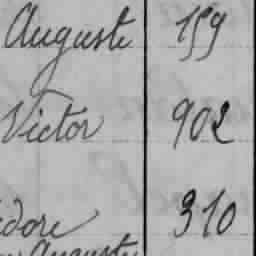 Auguste 159
Victor 902
310
Auguste